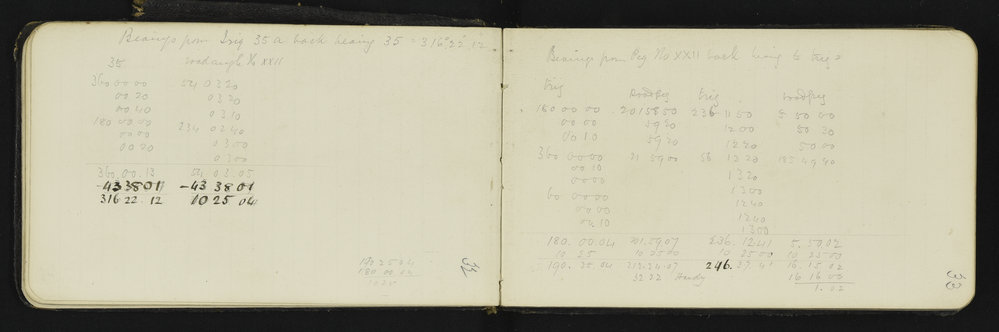 Bearings from Trig 35 a back bearing 35 = 316° 22' 12
35 road angle No XXII
360 00 00 54 03 20
00 20 03 20
00 40 03 10
180 00.00 234 02 40
00 00 03 00
00 20 03 00
360. 00. 13 54. 03. 05
-43 38 01 -43 38 01
316 22. 12 10 25 04
190 25 04
180 00 04
32
Bearings from Peg No XXII back being to trig
trig roadpeg trig roadpeg
180 00 00 201 58 50 236 11 50 5 50 00
00 00 59 20 12 00 50 20
00 10 59 20 12 20 50 00
360 00 00 21 59 00 56 12 20 185 49 40
00 10 13 20
00 00 13 00
60 00 00 12 40
00 00 12 40
00 10 13 00
180. 00. 04 201. 59. 07 236. 12 41 5. 50 02
10 25 10 25 00 10 25 00 10 25 00
190. 25. 04 212 24 07 246. 37 41 16. 15 02
32 22 16 16 00
1. 02
33